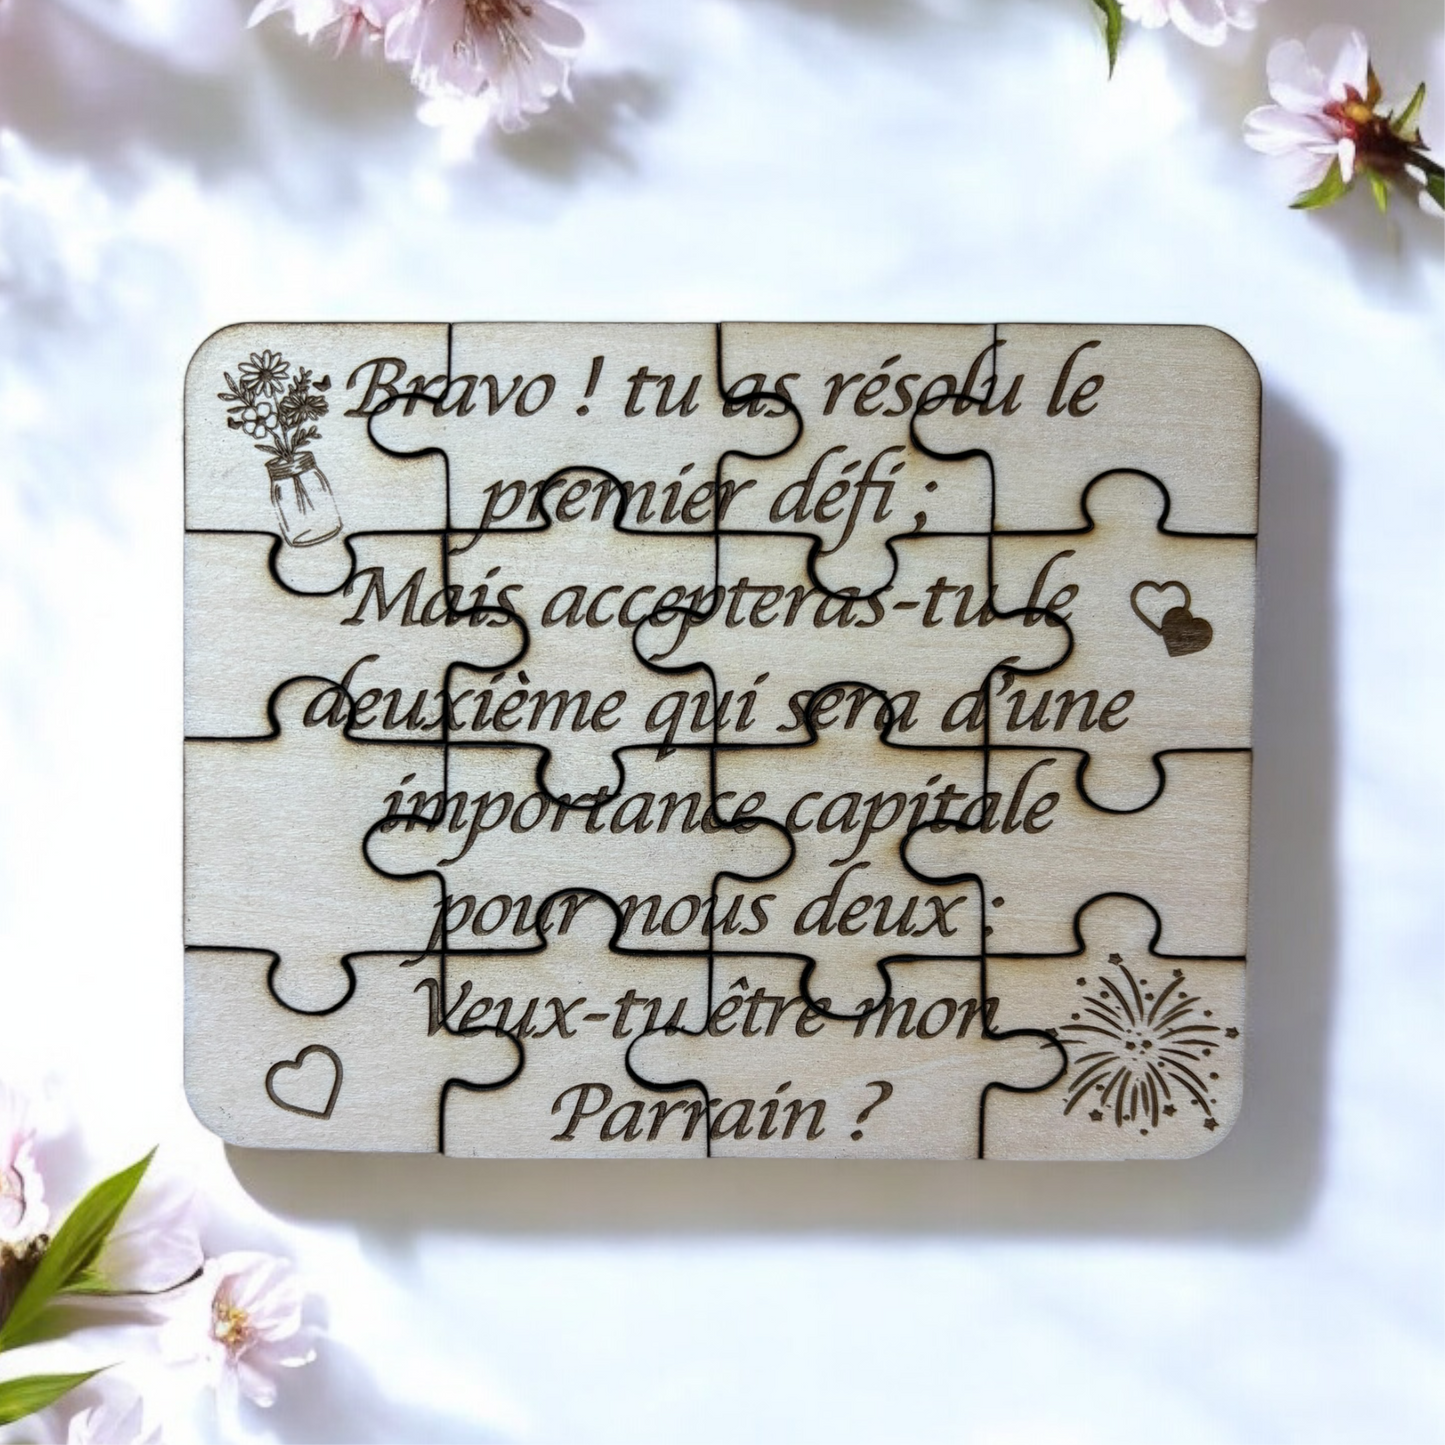 Bravo ! tu as résolu le
premier défi ;
Mais accepteras-tu le
deuxième qui sera d'une
importance capitale
pour nous deux :
Veux-tu être mon
Parrain ?